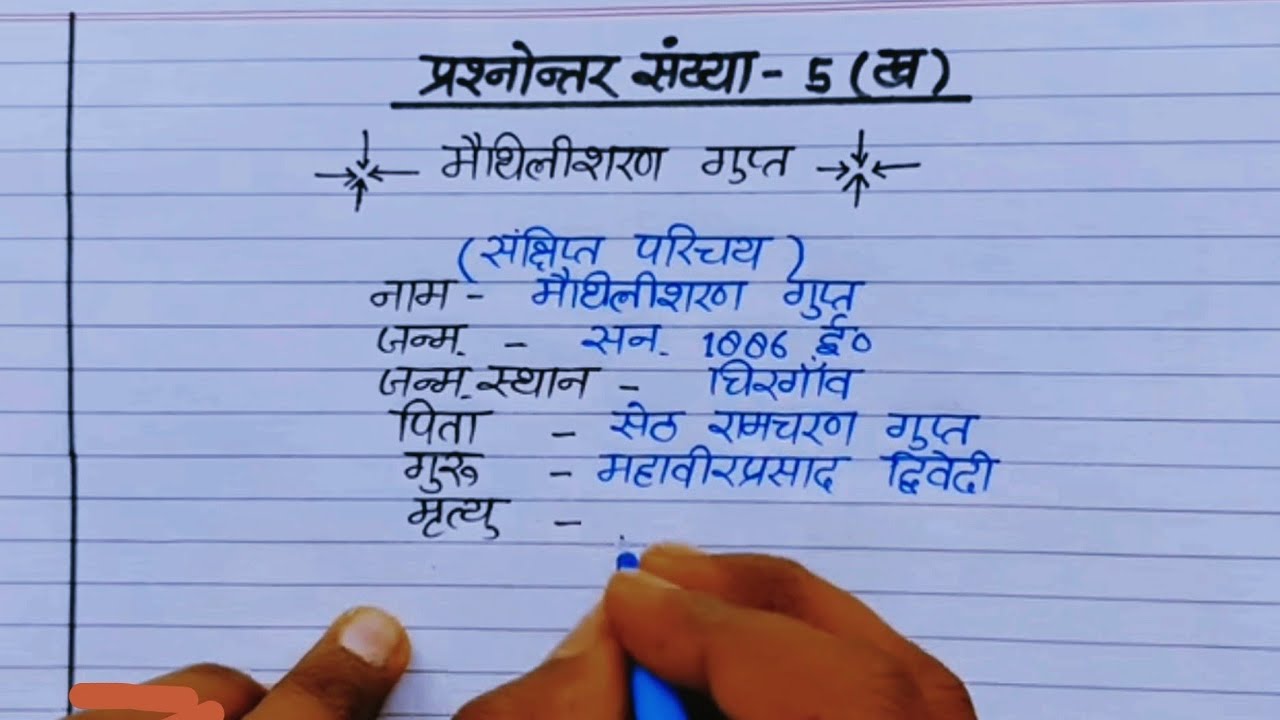 प्रश्नोन्तर संख्या - 5 (ख)
मैथिलीशरण गुप्त
(संक्षिप्त परिचय)
नाम - मैथिलीशरण गुप्त
जन्म - सन् 1886 ई०
जन्म स्थान - चिरगाँव
पिता - सेठ रामचरण गुप्त
गुरु - महावीरप्रसाद द्विवेदी
मृत्यु -